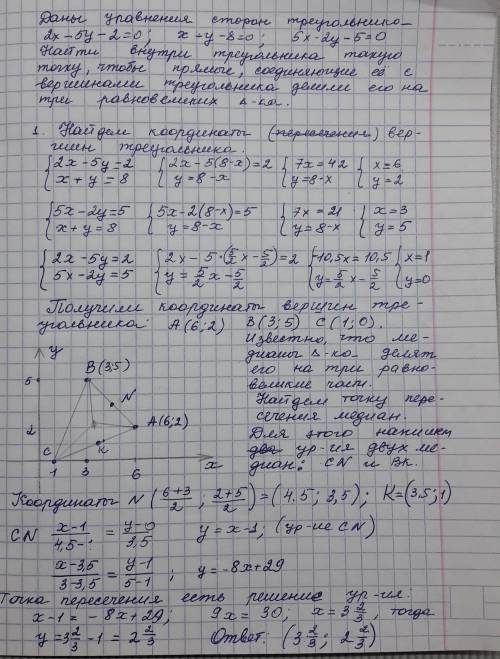 Даны уравнения сторон треугольника
2x-5y-2=0; x+y-8=0; 5x-2y-5=0
Найти внутри треугольника такую
точку, чтобы прямые, соединяющие её с
вершинами треугольника делили его на
три равновеликих △-ка.
1. Найдем координаты (пересечения) вер-
шин треугольника.
{2x-5y=2 {2x-5(8-x)=2 {7x=42 {x=6
{x+y=8 {y=8-x {y=8-x {y=2
{5x-2y=5 {5x-2(8-x)=5 {7x=21 {x=3
{x+y=8 {y=8-x {y=8-x {y=5
{2x-5y=2 {2x-5·(5/2x-5/2)=2 {-10,5x=10,5 {x=1
{5x-2y=5 {y=5/2x-5/2 {y=5/2x-5/2 {y=0
Получили координаты вершин тре-
угольника: A(6;2) B(3;5) C(1;0).
Известно, что ме-
дианы △-ка делят
его на три равно-
великие части.
Найдем точку пере-
сечения медиан.
Для этого напишем
два ур-ия двух ме-
диан: CN и BK.
y
B(3;5)
5
N
2
A(6;2)
C
K
1 3 6 x
Координаты N (6+3/2; 2+5/2)=(4.5; 3,5); K=(3,5;1)
CN x-1/4,5-1 = y-0/3,5 y=x-1; (ур-ие CN)
x-3,5/3-3,5 = y-1/5-1; y=-8x+29
Точка пересечения есть решение ур-ия:
x-1=-8x+29; 9x=30; x=3 2/3, тогда
y=3 2/3-1=2 2/3 Ответ: (3 2/3; 2 2/3)